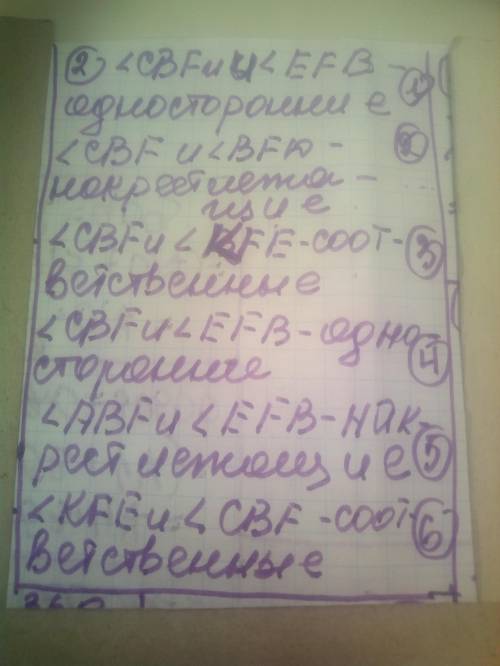 ② <CBF и <EFB - ①
односторонние
<CBF и <BFD - ②
накрест лежа -
щие
<CBF и <KFE - соот - ③
ветственные
<CBF и <EFB - одно - ④
сторонние
<ABF и <EFB - нак -
рест лежащие ⑤
<KFE и <CBF - соот - ⑥
ветственные